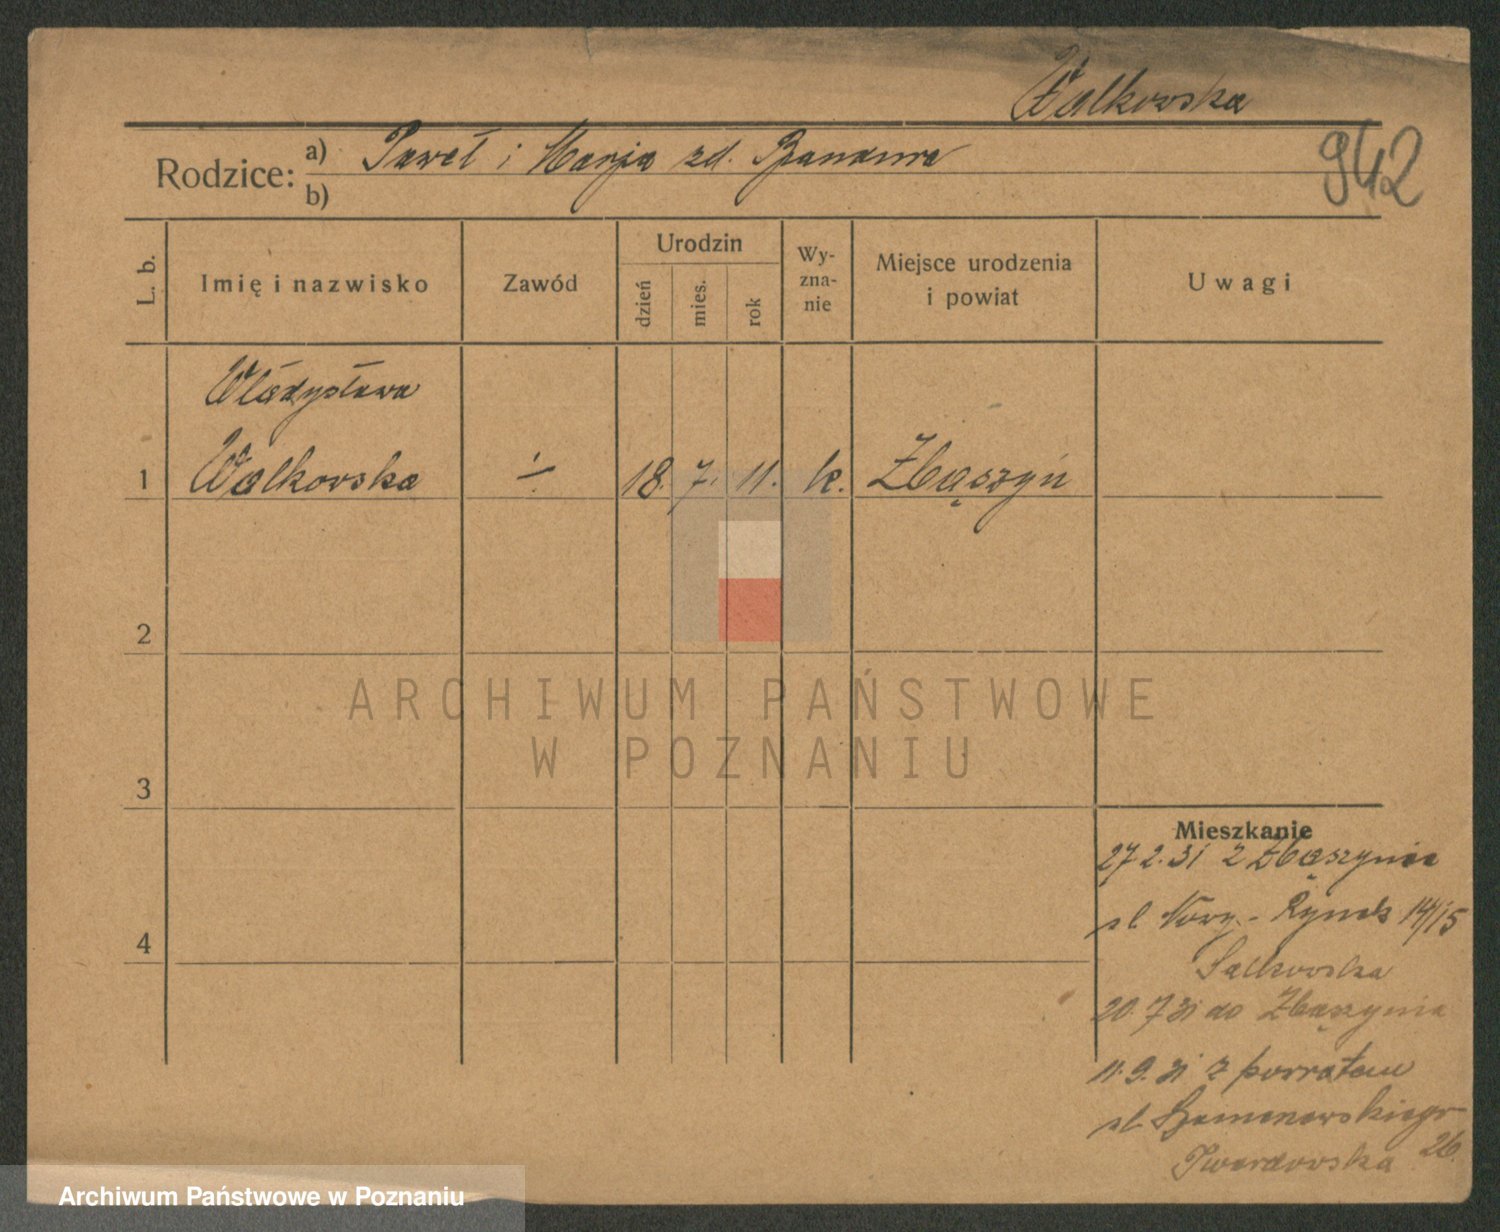 Walkowska
942
Rodzice: a) Paweł i Marja zd. Bandura
b)
L. b.
Imię i nazwisko
Zawód
Urodzin
dzień
mies.
rok
Wy-
zna-
nie
Miejsce urodzenia
i powiat
Uwagi
Władysława
1 Walkowska ÷ 18. 7. 11. k. Zbąszyń
2
3
4
ARCHIWUM PAŃSTWOWE
W POZNANIU
Mieszkanie
27.2.31 z Zbąszynia
ul. Nowy-Rynek 14/15
20.7.31 do Zbąszynia
11.9.31 z powrotem
ul.
26.
Twardowska
Archiwum Państwowe w Poznaniu